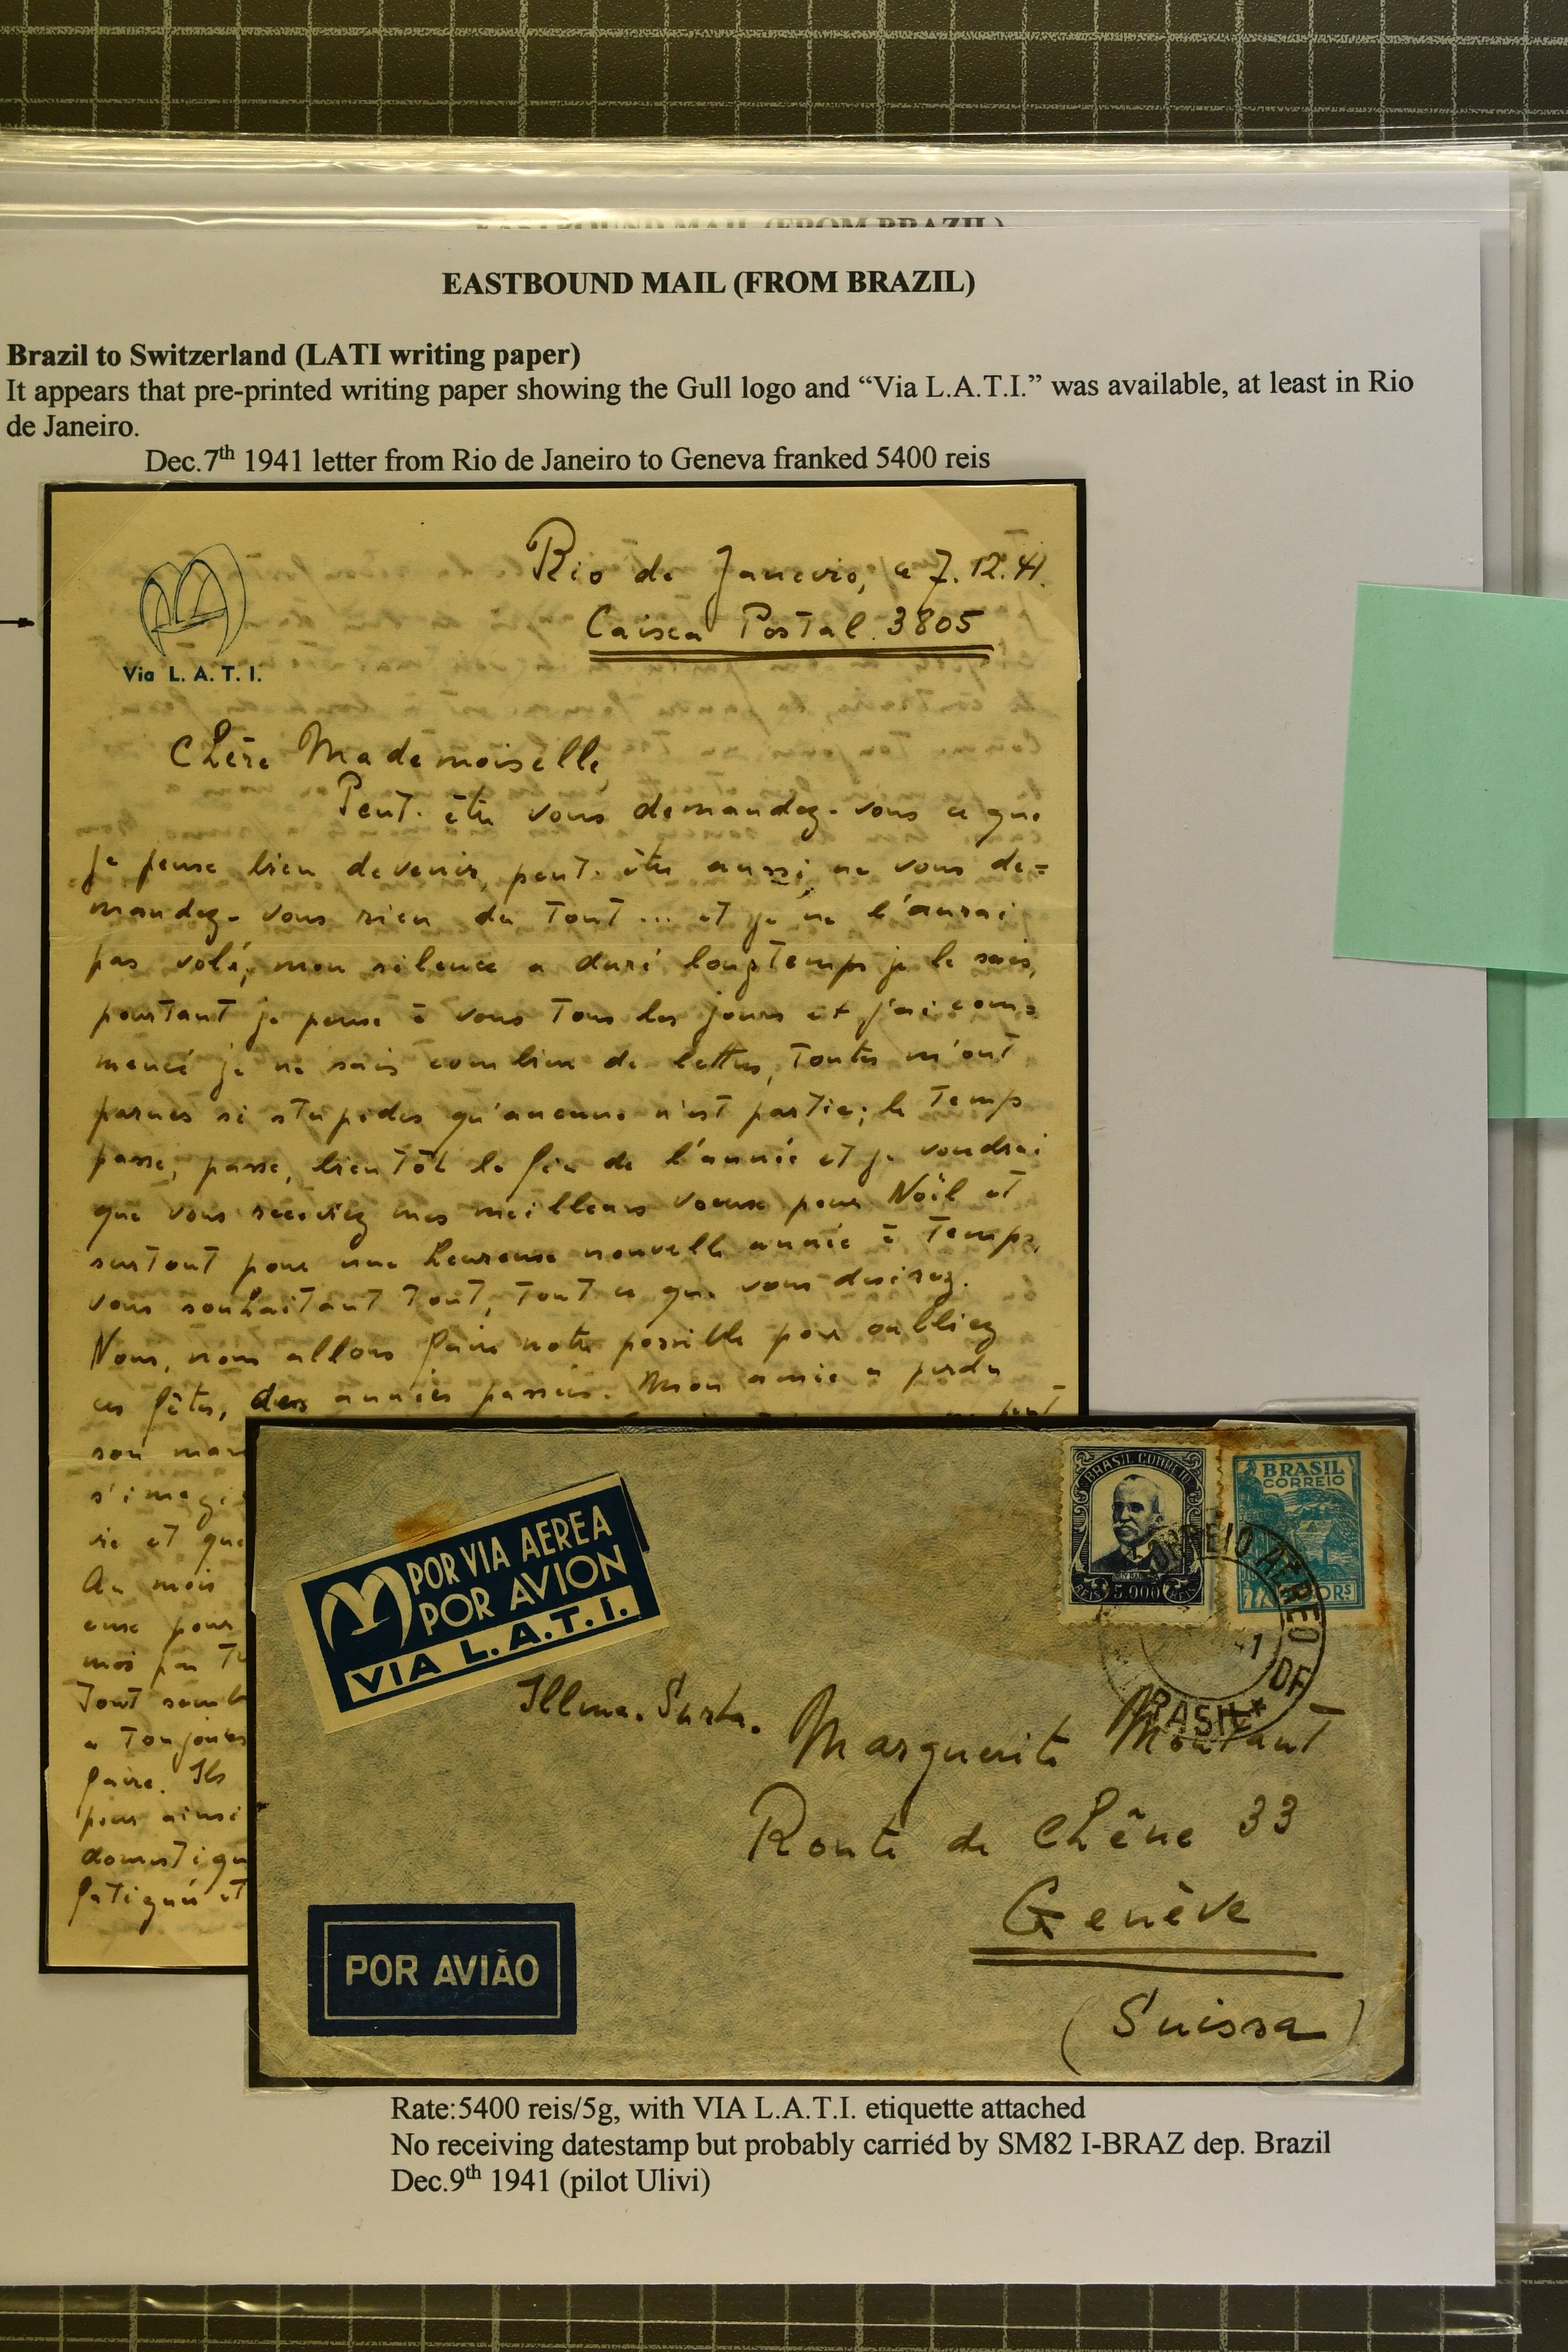 EASTBOUND MAIL (FROM BRAZIL)
EASTBOUND MAIL (FROM BRAZIL)
Brazil to Switzerland (LATI writing paper)
It appears that pre-printed writing paper showing the Gull logo and “Via L.A.T.I.” was available, at least in Rio
de Janeiro.
Dec.7th 1941 letter from Rio de Janeiro to Geneva franked 5400 reis
Rio de Janeiro, a 7.12.41.
Caixa Postal 3805
Via L. A. T. I.
Chère Mademoiselle,
Peut-être vous demandez-vous ce que
je peuse bien devenir, peut-être aussi ne vous de=
mandez-vous rien du tout ... et je ne l'aurai
pas volé, mon silence a duré longtemps je le sais,
pourtant je pense à vous tous les jours et j'ai com=
mencé je ne sais combien de lettres, toutes m'ont
parues si stupides qu'aucune n'est partie; le temps
passe, passe, bientôt la fin de l'année et je voudrai
que vous receviez mes meilleurs voeux pour Noël et
surtout pour une heureuse nouvelle année à temps,
vous souhaitant tout, tout ce que vous désirez.
Nous, nous allons faire notre possible pour oubliez
ces fêtes, des années passées. Mon amie a perdu
son mari
s'imagi
vie et que
Au mois
euse pour
moi
Tout semb
a toujours
faire. Ils
pour ainsi
domestique
fatigué et
BRASIL CORREIO
5.000
REIS
BRASIL
CORREIO
CORREIO AEREO
DF
BRASIL*
41
POR VIA AEREA
POR AVION
VIA L.A.T.I.
Illma. Snrta.
Marguerite Montant
Route de Chêne 33
Genève
(Suissa)
POR AVIÃO
Rate:5400 reis/5g, with VIA L.A.T.I. etiquette attached
No receiving datestamp but probably carried by SM82 I-BRAZ dep. Brazil
Dec.9th 1941 (pilot Ulivi)